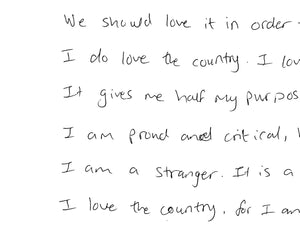 We should love it in order
I do love the country. I
It gives me half my
I am proud and critical,
I am a stranger. It is a
I love the country, for I